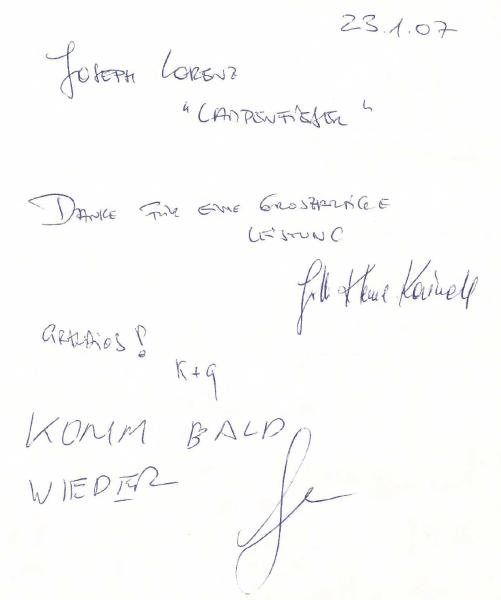 23.1.07
JOSEPH LORENZ
"LAMPENFIEBER"
DANKE FÜR EINE GROSZARTIGE
LEISTUNG
GRANDIOS!
K+G
KOMM BALD
WIEDER